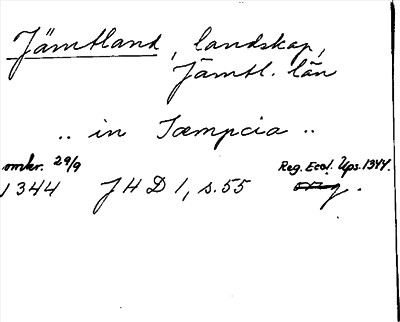 Jämtland, landskap,
Jämtl. län
.. in Iæmpcia ..
omkr. 29/9 Reg. Eccl. Ups. 1344.
1344 JHD 1, s. 55 orig.